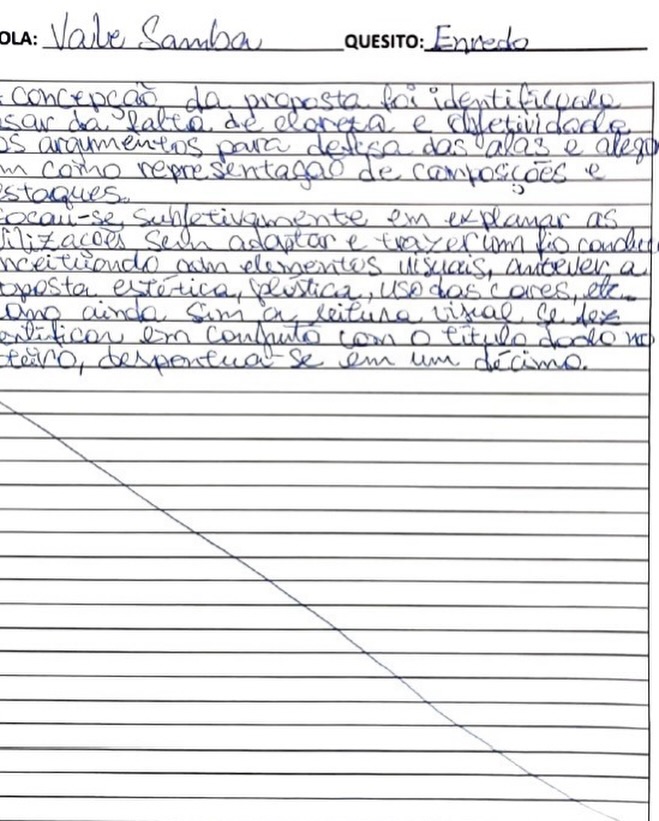 OLA: Vale Samba QUESITO: Enredo
concepção da proposta foi identificada
sar da falta de clareza e objetividade
os argumentos para defesa das alas e alego
m como representação de composições e
staques.
ocou-se subjetivamente em explanar as
ilizações sem adaptar e trazer um fio condu
nceituando com elementos visuais, antever a
oposta estética, plástica, uso das cores, etc.
omo ainda sim a leitura visual se dex
entificar em conjunto com o título dado no
teiro, despontua-se em um décimo.